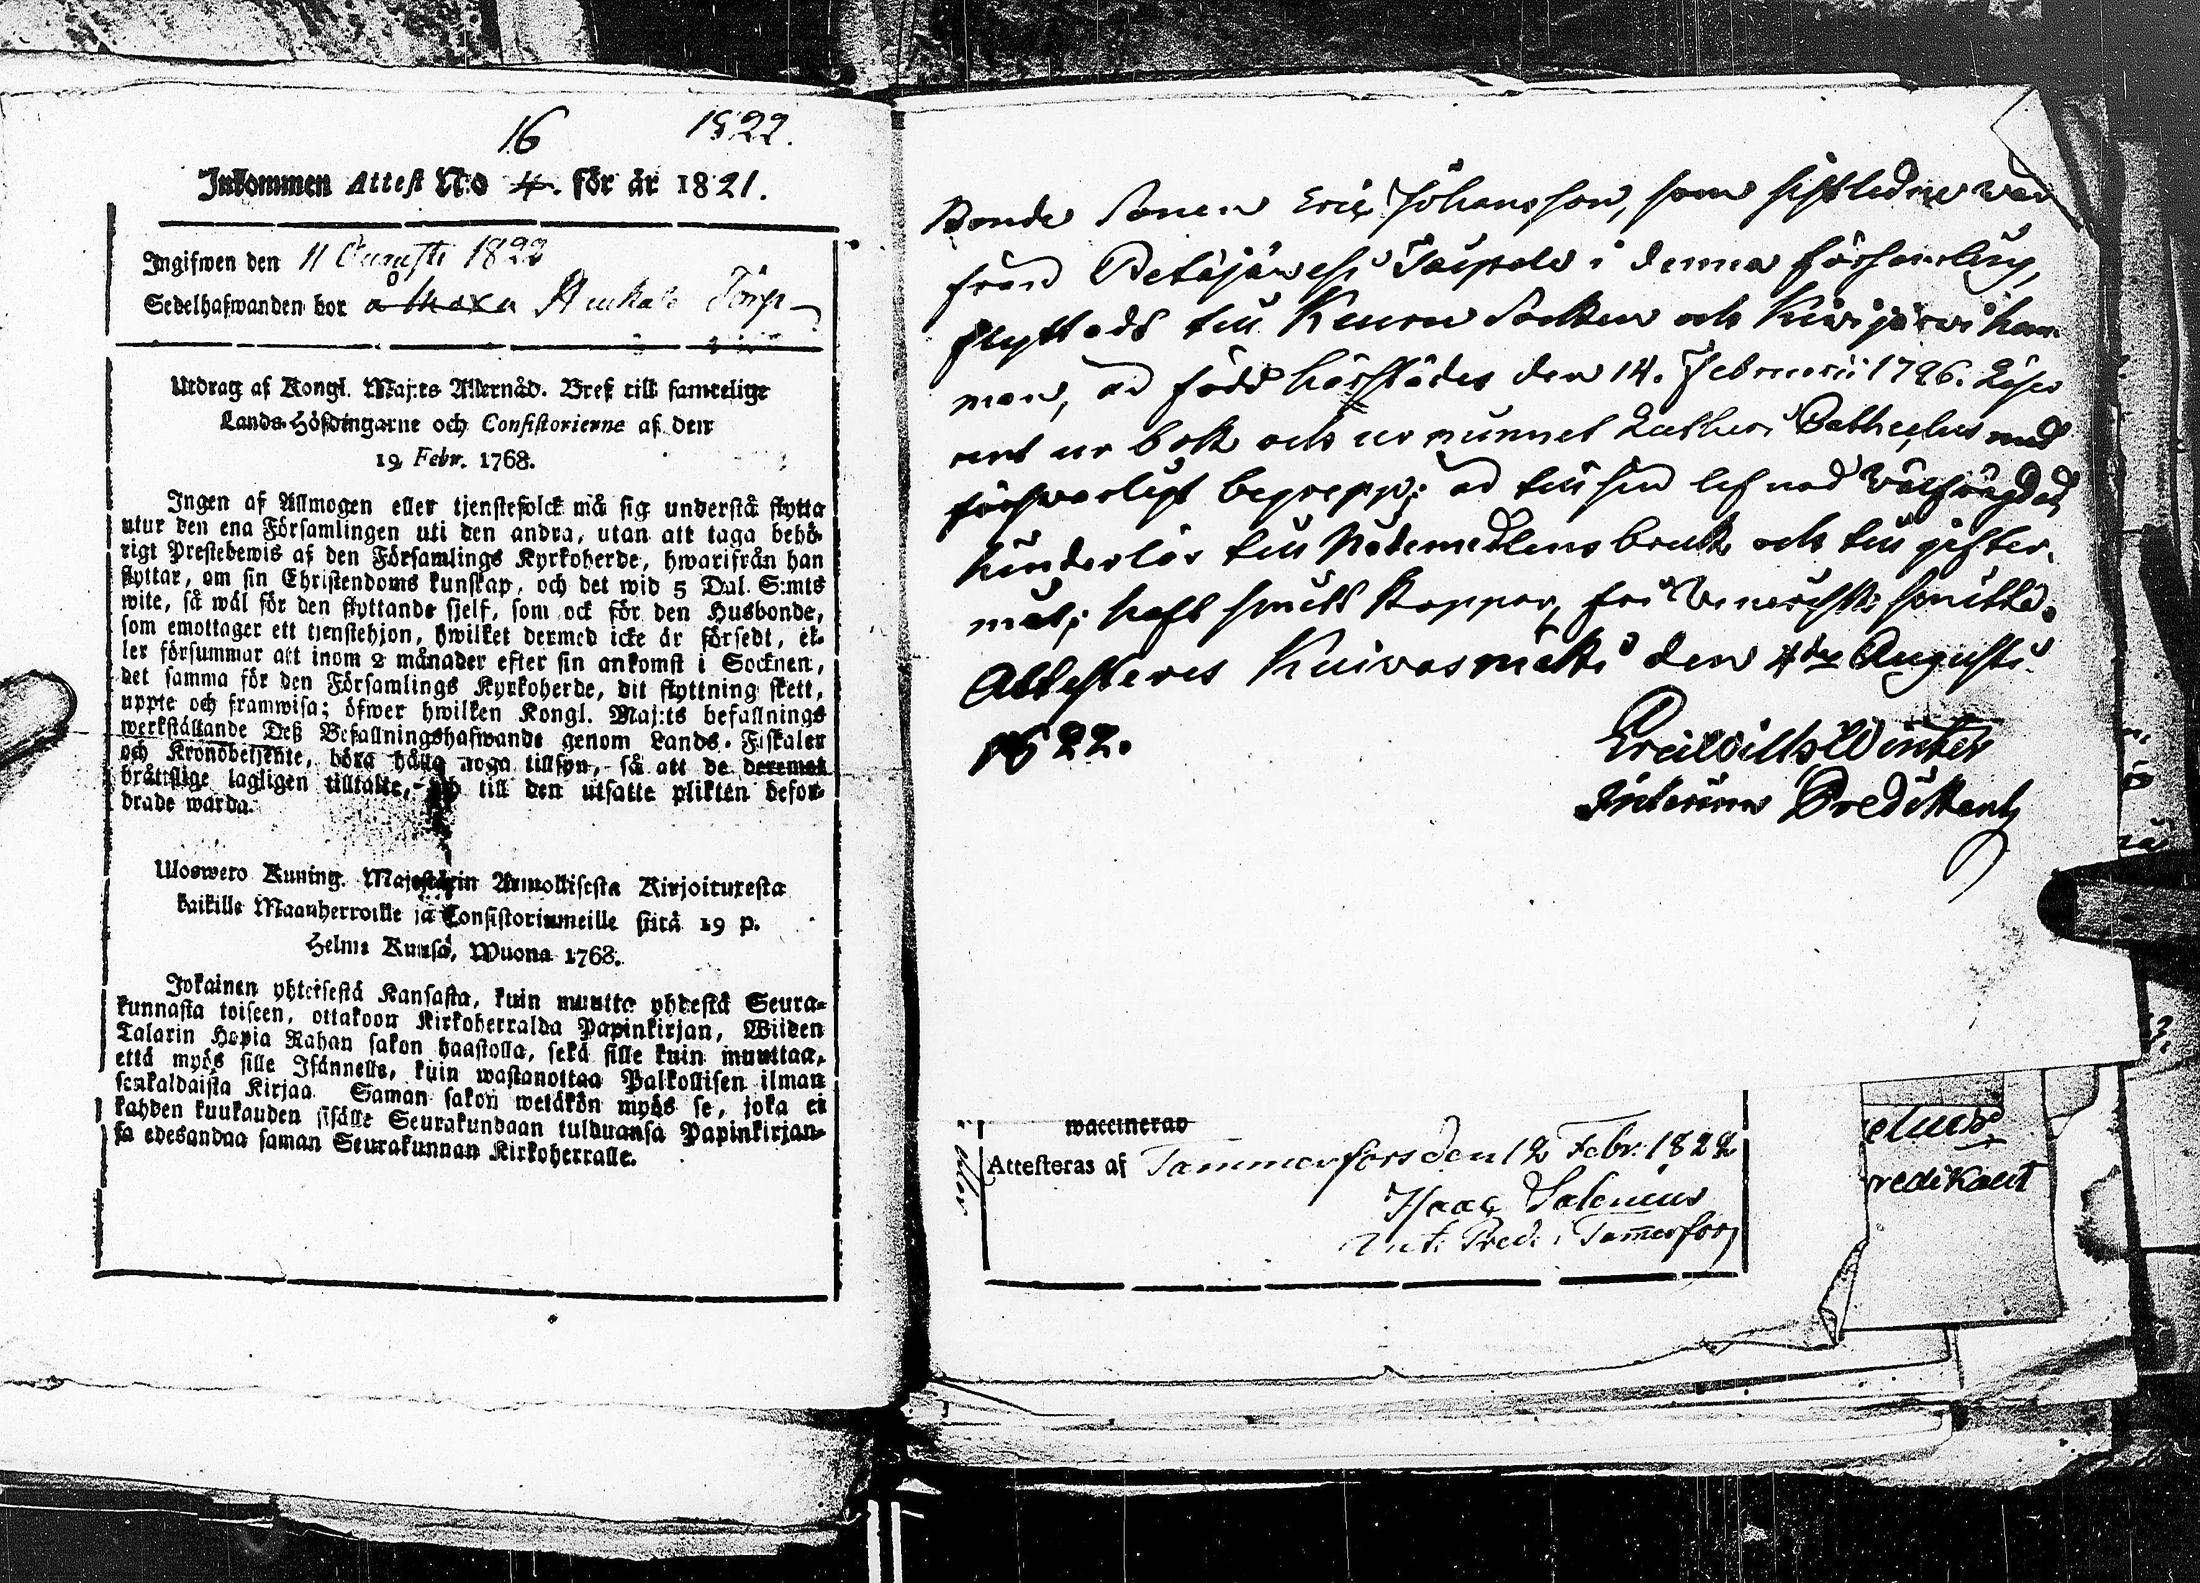 16 1822.
Inkommen Attest N:o 4. för år 1821.
Ingifwen den 11 Augusti 1822
Sedelhafwanden bor å
Utdrag af Kongl. Maj:ts Allernåd. Bref till samtelige
Lands-Höfdingarne och Consistorierne af den
19 Febr. 1768.
Ingen af Allmogen eller tjenstefolck må sig understå flytta
utur den ena Församlingen uti den andra, utan att taga behö-
rigt Prestebewis af den Församlings Kyrkoherde, hwarifrån han
flyttar, om sin Christendoms kunskap, och det wid 5 Dal. S:mts
wite, så wäl för den flyttande sjelf, som ock för den Husbonde,
som emottager ett tjenstehjon, hwilket dermed icke är försedt, el-
ler försummar att inom 2 månader efter sin ankomst i Socknen,
det samma för den Församlings Kyrkoherde, dit flyttning skett,
uppte och framwisa; öfwer hwilken Kongl. Maj:ts befallnings
werkställande Deß Befallningshafwande genom Lands-Fiskaler
och Kronobetjente, böra hålla noga tillsyn, så att de deremot
bråttslige lagligen tilltalte, och till den utsatte plikten befor-
drade warda.
Uloswero Kuning. Majestätin Armollisesta Kirjoituxesta
kaikille Maanherroille ja Consistoriumeille siitä 19 p.
Helme Kuusa, Wuona 1768.
Jokainen yhteisestä Kansasta, kuin muutta yhdestä Seura-
kunnasta toiseen, ottakoon Kirkoherralda Papinkirjan, Wiiden
Talarin Hopia Rahan sakon haastolla, sekä sille kuin muuttaa,
että myös sille Isännelle, kuin wastanottaa Palkollisen ilman
senkaldaista Kirjaa. Saman sakon wetäkön myös se, joka ei
kahden kuukauden sisälle Seurakundaan tulduansa Papinkirjan-
sa edesandaa saman Seurakunnan Kirkoherralle.
Bonde Sonen Eric Johansson, som sistledne war
från Petäjäwesi Taipale i denna församling,
flyttade till Keuru Socken och Kiwijärwi
är född härstädes den 14. Februarii 1796. Läser
rent ur bok och ur minnet Lutheri Catheches med
förswarligt begrepp; är till sin lefnad wälfrägdad,
hinderlös till Nådemedlens bruk och till gifter-
mål; haft små kkoppor, fri Venerisk smitta.
Attesteres Kuivasmäki den 4de Augusti
1822.
Winter
Interims Predikant
waccinerad
Attesteras af Tammerfors den 12 Febr. 1822
Isaac Salenius
Pred. i Tammerfors
eller
redikant